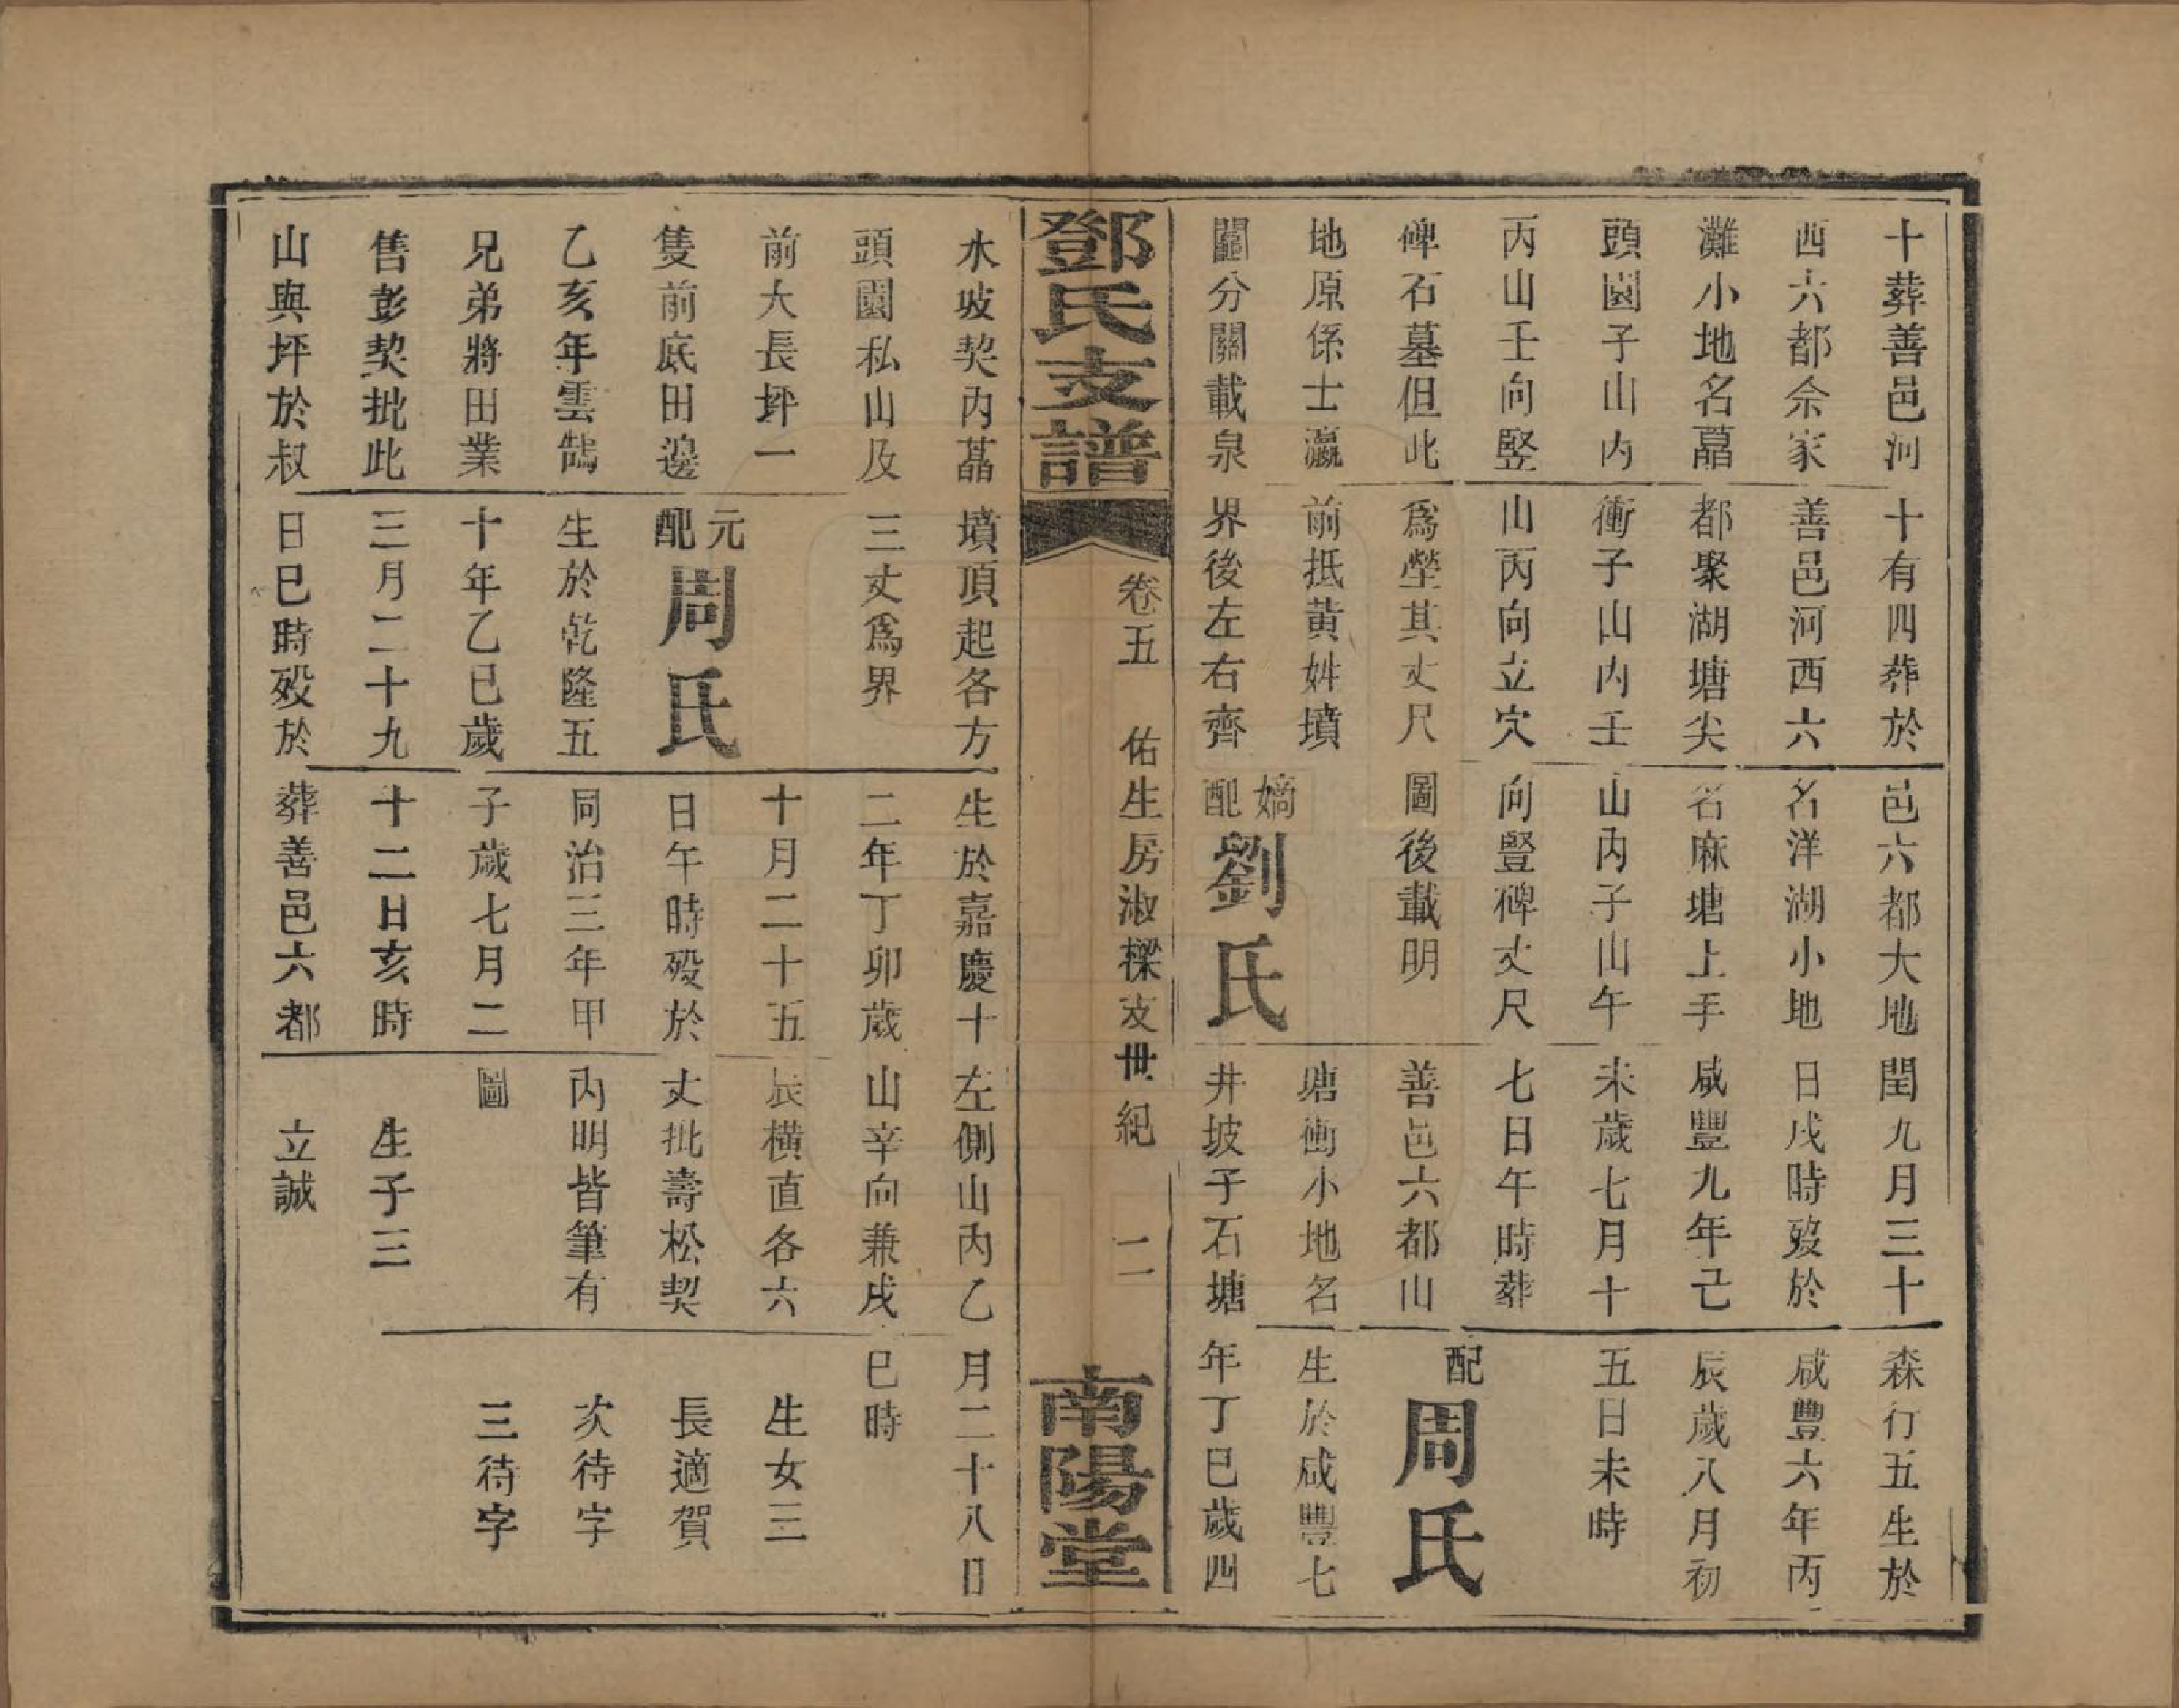 十葬善邑河
西六都佘家
灘小地名藠
頭園子山內
丙山壬向竪
碑石墓但此
地原係士瀛
闓分關載泉
十有四葬於
善邑河西六
都聚湖塘尖
衝子山內壬
山丙向立穴
爲塋其丈尺
前抵黃姓墳
界後左右齊
邑六都大地
名洋湖小地
名麻塘上手
山內子山午
向豎碑丈尺
圖後載明
嫡配劉氏
閏九月三十
日戌時歿於
咸豐九年己
未歲七月十
七日午時葬
善邑六都山
塘衝小地名
井坡子石塘
森行五生於
咸豐六年丙
辰歲八月初
五日未時
配周氏
生於咸豐七
年丁巳歲四
鄧氏支譜
卷五 佑生房淑樑支世紀 二
南陽堂
水坡契內藠
頭園私山及
前大長坪一
隻前底田邊
乙亥年雲鵠
兄弟將田業
售彭契批此
山與坪於叔
墳頂起各方
三丈爲界
元配周氏
生於乾隆五
十年乙巳歲
三月二十九
日巳時歿於
生於嘉慶十
二年丁卯歲
十月二十五
日午時歿於
同治三年甲
子歲七月二
十二日亥時
葬善邑六都
左側山內乙
山辛向兼戌
辰橫直各六
丈批壽松契
內明皆筆有
圖
生子三
立誠
月二十八日
巳時
生女三
長適賀
次待字
三待字